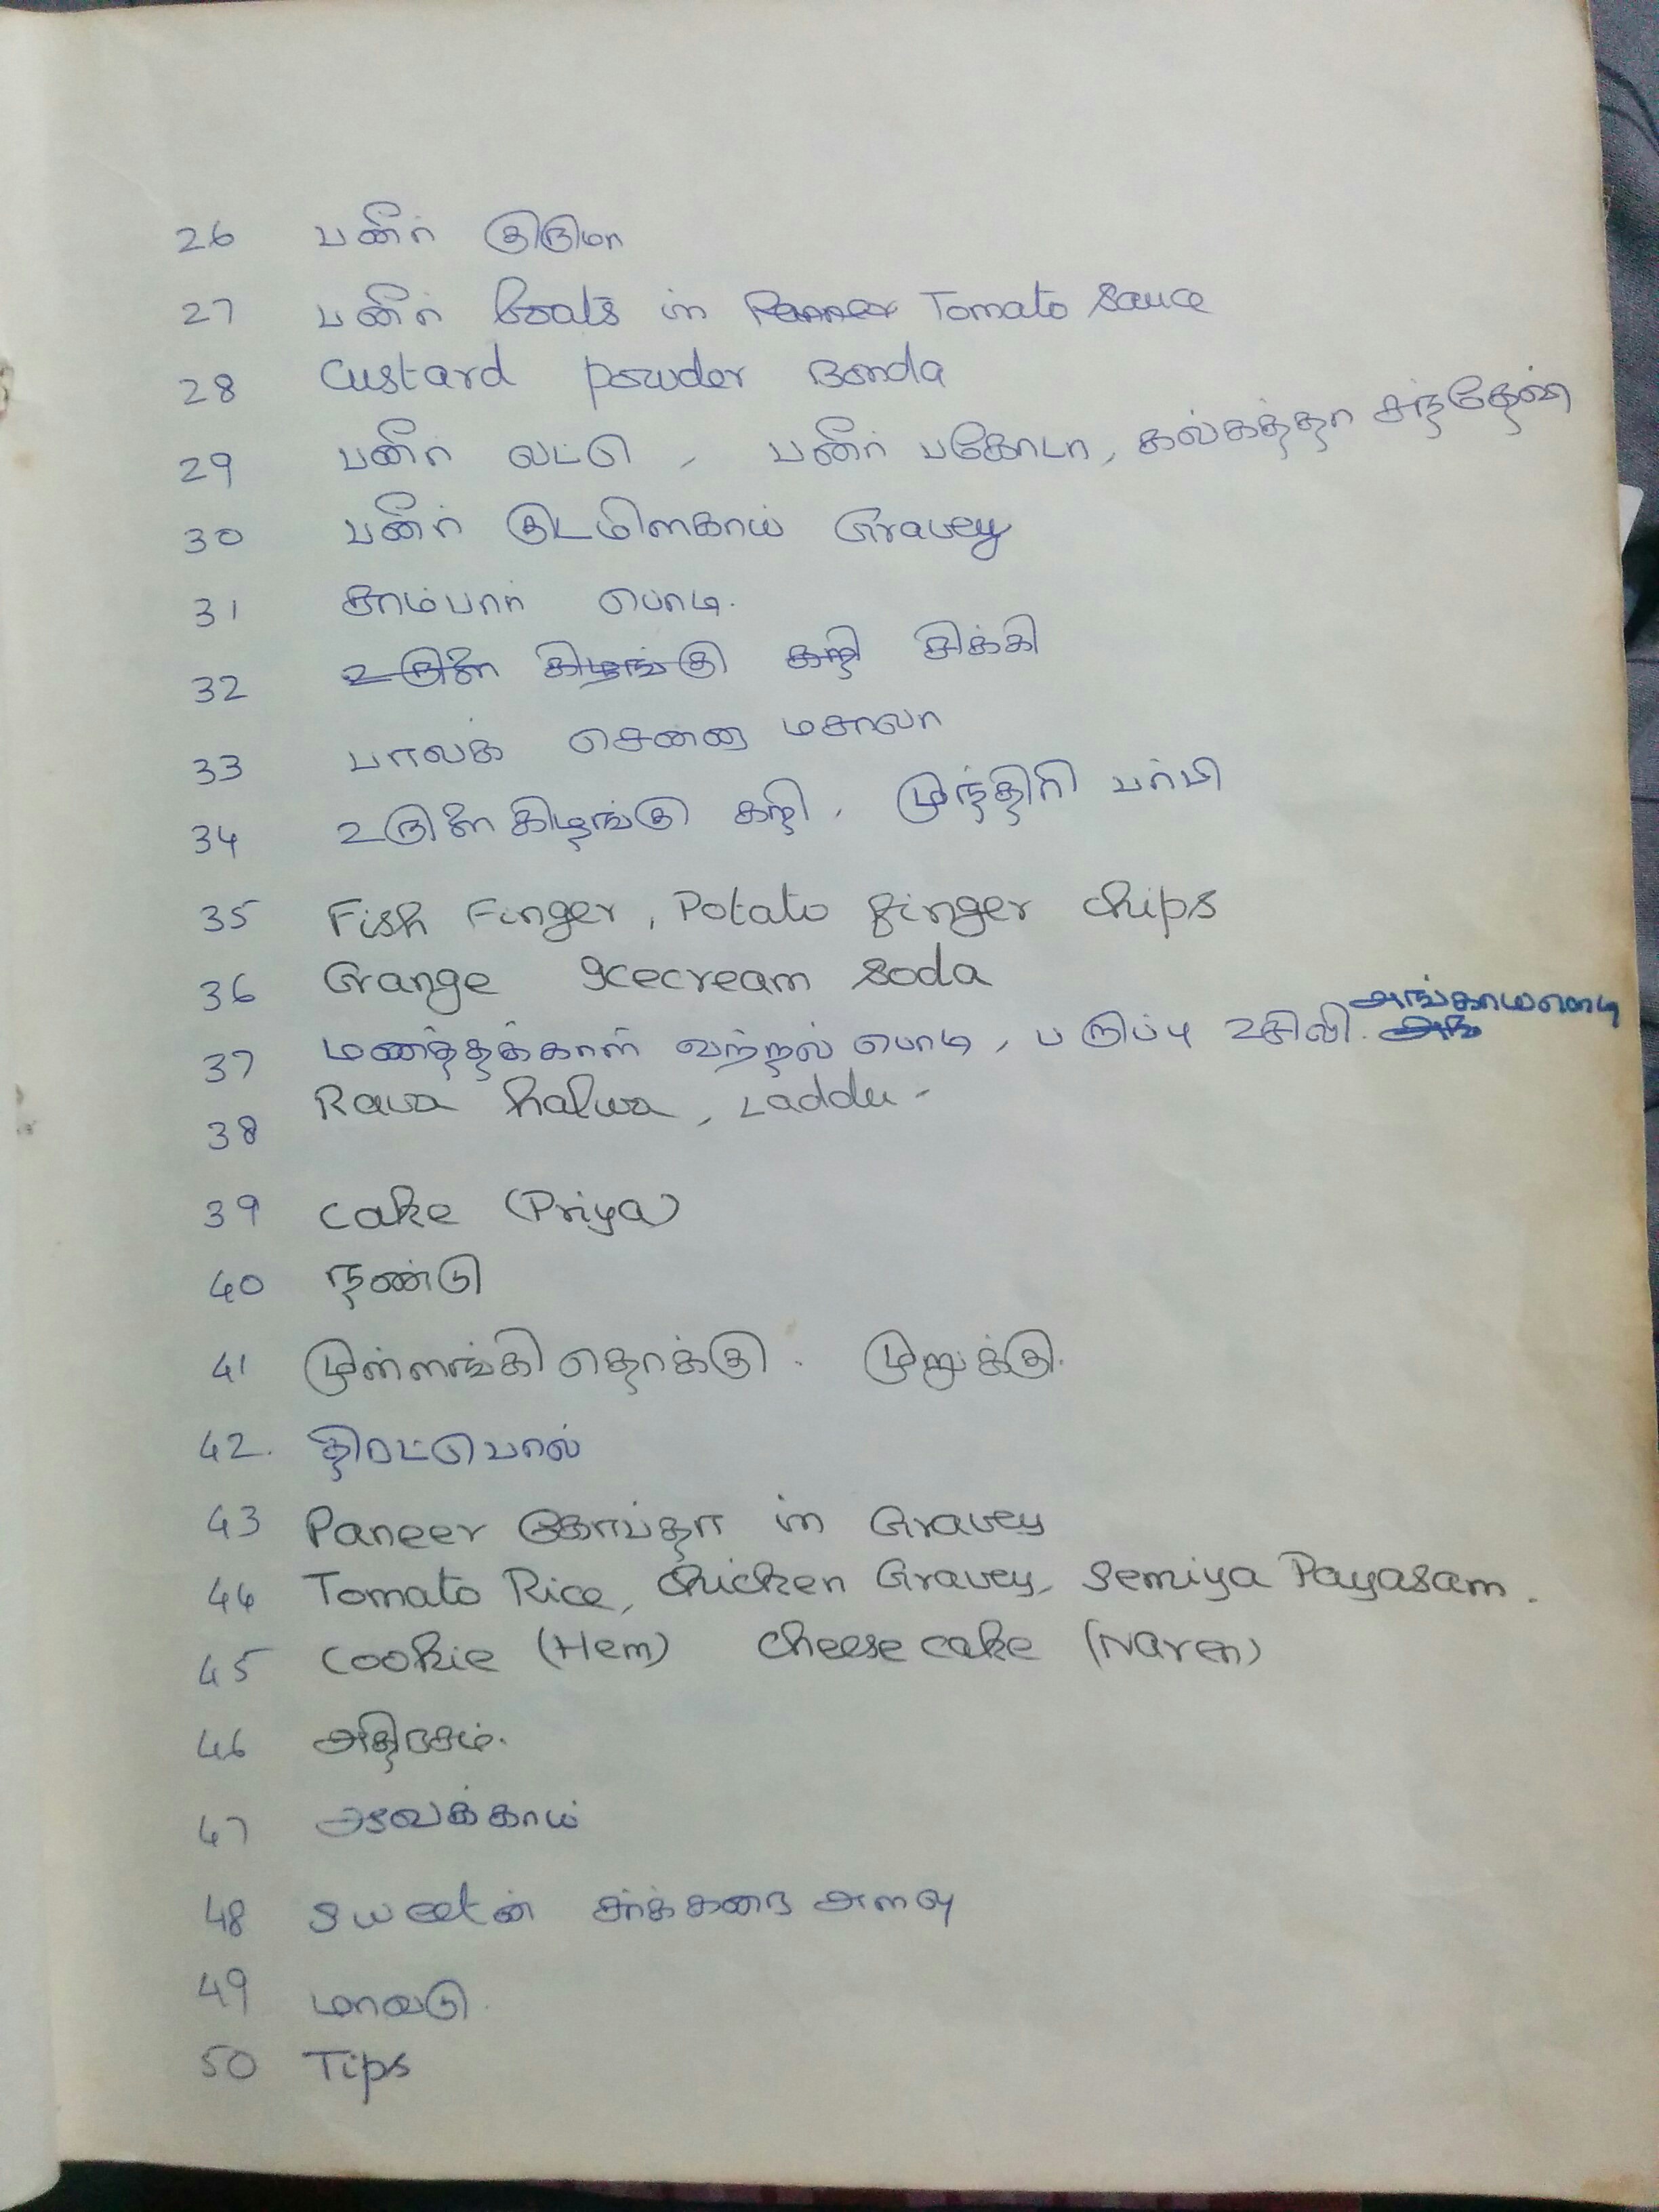 26 பனீர் குருமா
27 பனீர் boats in Panner Tomato Sauce
28 Custard powder Bonda
29 பனீர் லட்டு, பனீர் பகோடா, கல்கத்தா சந்தேஷ்
30 பனீர் குடமிளகாய் Gravey
31 சாம்பார் பொடி.
32 உருளை கிழங்கு கறி சிக்கி
33 பாலக் சென்னா மசாலா
34 உருளைகிழங்கு கறி, முந்திரி பர்பி
35 Fish Finger, Potato finger chips
36 Orange Icecream Soda
37 மணத்தக்காளி வற்றல் பொடி, பருப்பு உசிலி. அங்காயபொடி
38 Rava halwa, Laddu -
39 Cake (Priya)
40 நண்டு
41 முள்ளங்கி தொக்கு. முறுக்கு.
42. திரட்டுபால்
43 Paneer கோப்தா in Gravey
44 Tomato Rice, Chicken Gravey, Semiya Payasam.
45 Cookie (Hem) Cheese cake (Naren)
46 அதிரசம்.
47 ஆவக்காய்
48 Sweetன் சர்க்கரை அளவு
49 மாவடு.
50 Tips